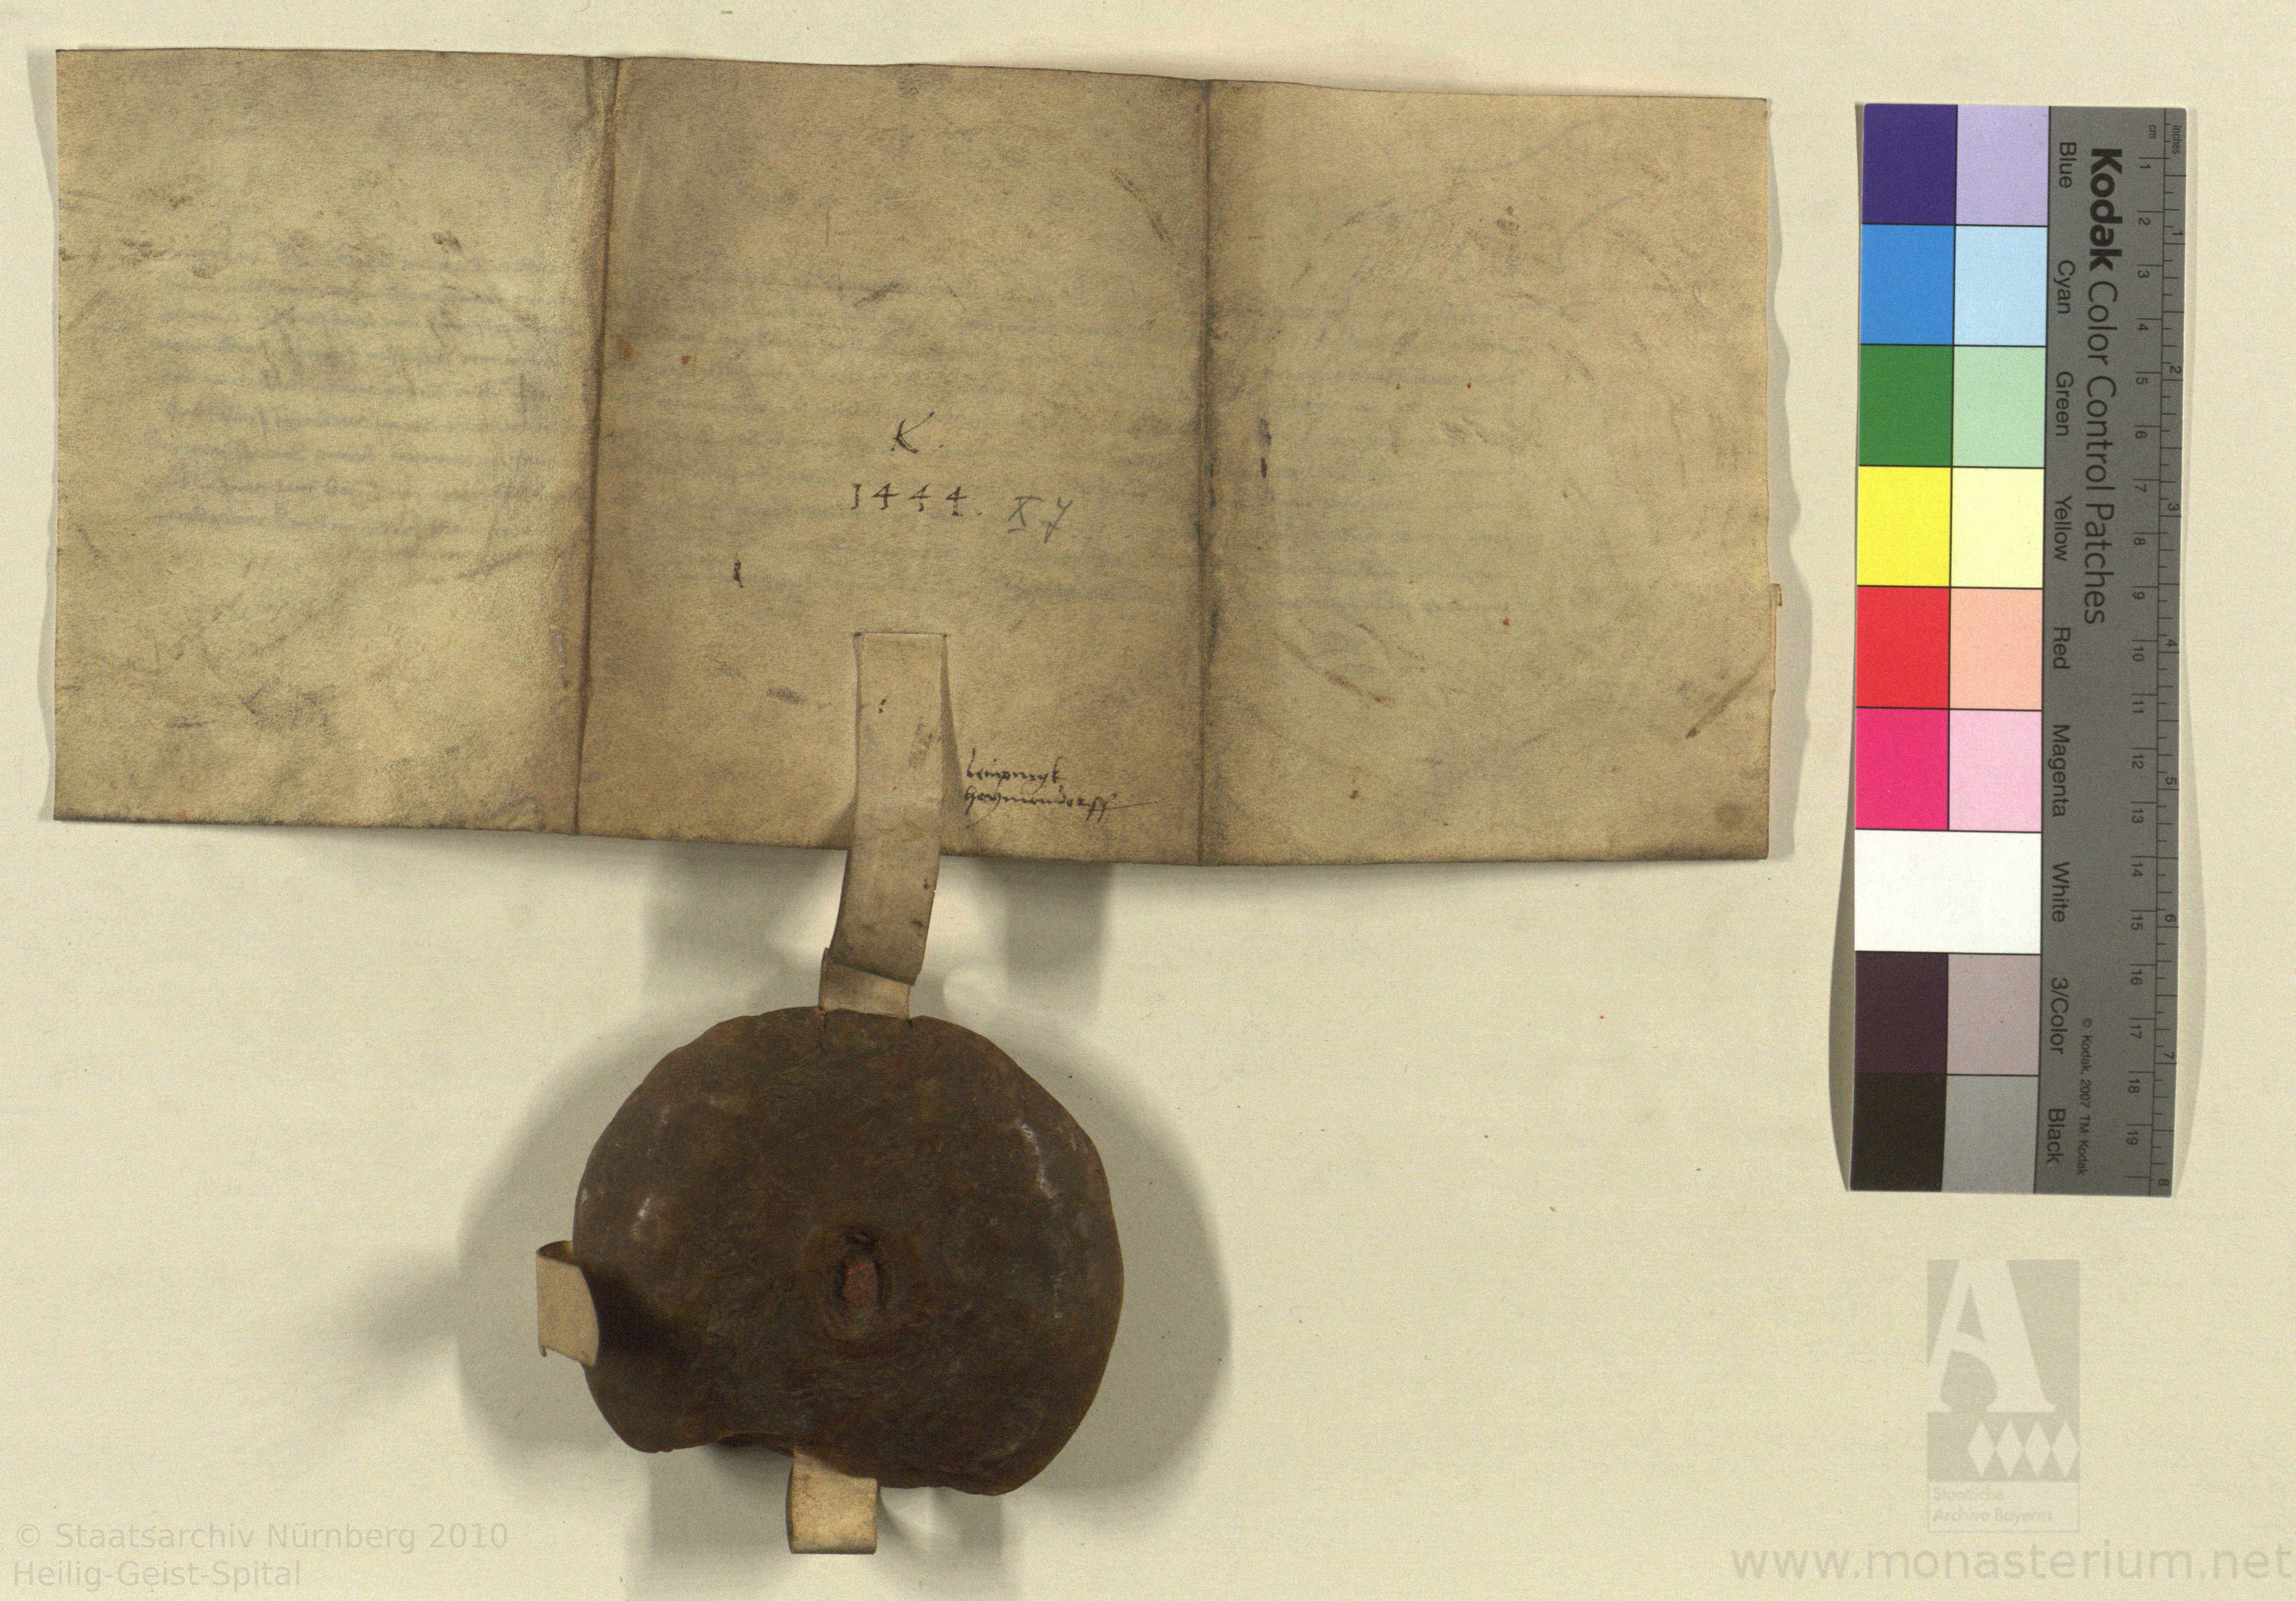 K.
1444. X 7
heymendorff
Kodak Color Control Patches
Blue Cyan Green Yellow Red Magenta White 3/Color Black
© Kodak, 2007 TM: Kodak
cm 1 2 3 4 5 6 7 8 9 10 11 12 13 14 15 16 17 18 19
inches 1 2 3 4 5 6 7 8
A
Staatliche
Archive Bayerns
© Staatsarchiv Nürnberg 2010
Heilig-Geist-Spital
www.monasterium.net